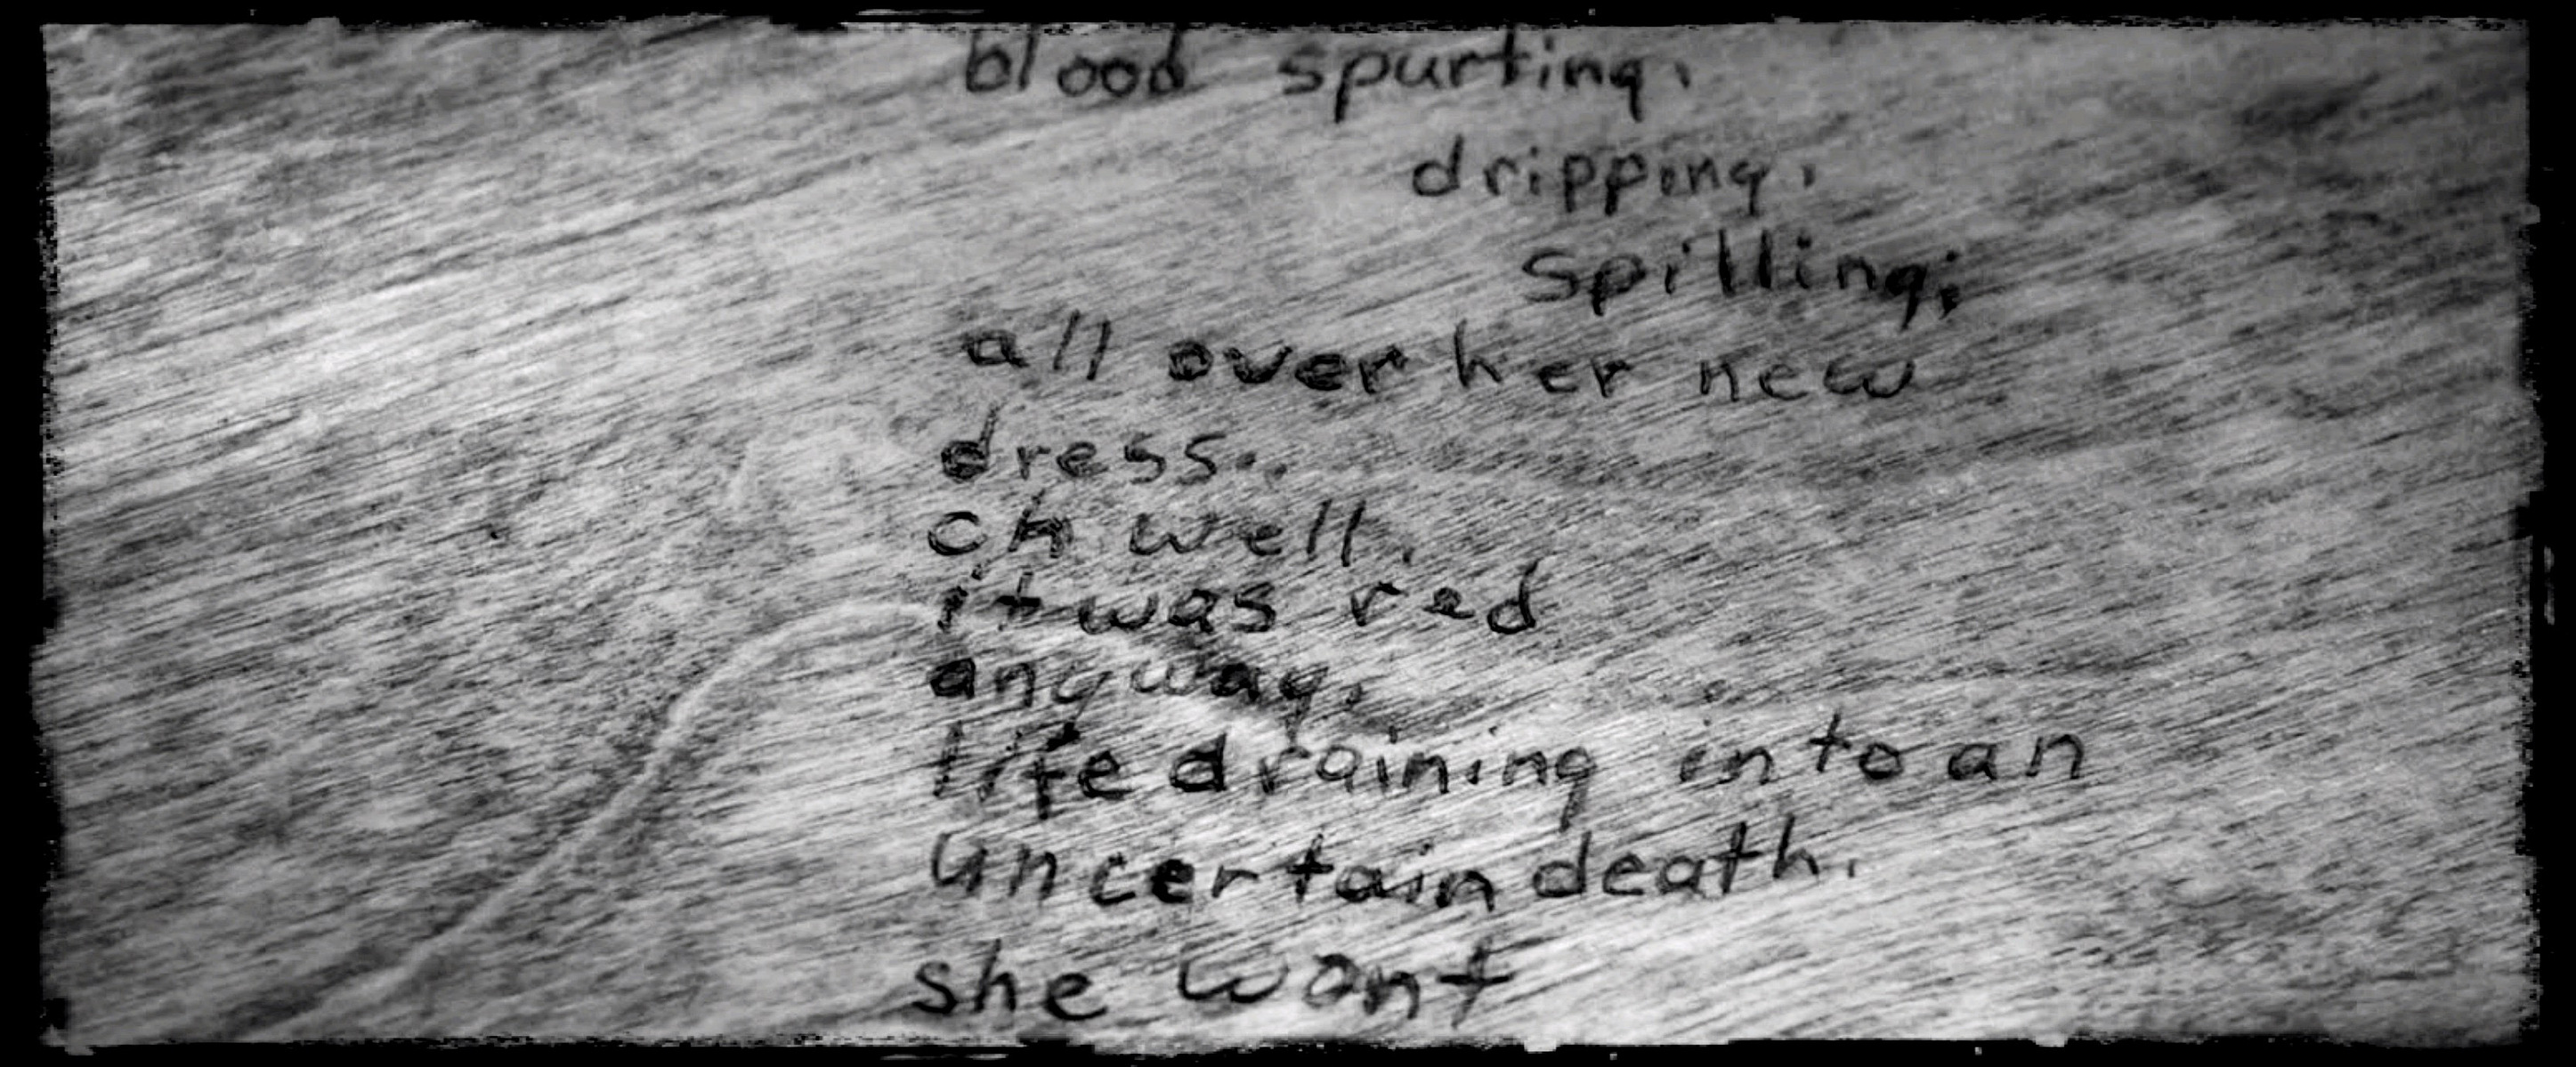 blood spurting.
dripping.
spilling;
all over her new
dress..
oh well.
it was red
anyway.
life draining into an
uncertain death.
she want